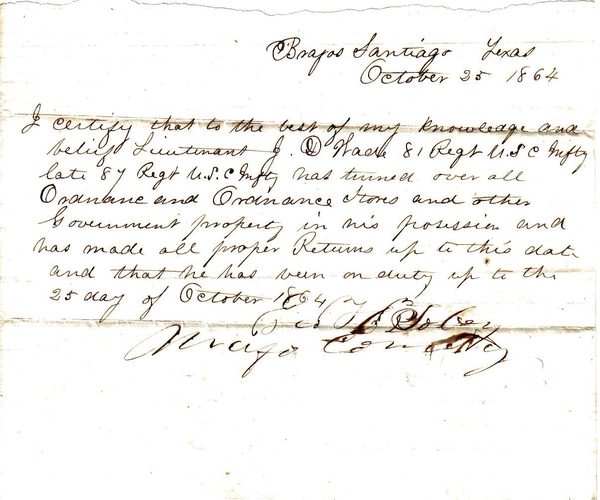 Brazos Santiago Texas
October 25 1864
I certify that to the best of my knowledge and
belief Lieutenant J. D Wade 81 Regt U.S C Infty
late 87 Regt U.S.C Infty has turned over all
Ordnanc and Ordnance Stores and other
Government property in his posession and
has made all proper Returns up to this date
and that he has been on duty up to the
25 day of October 1864
Major Comdg